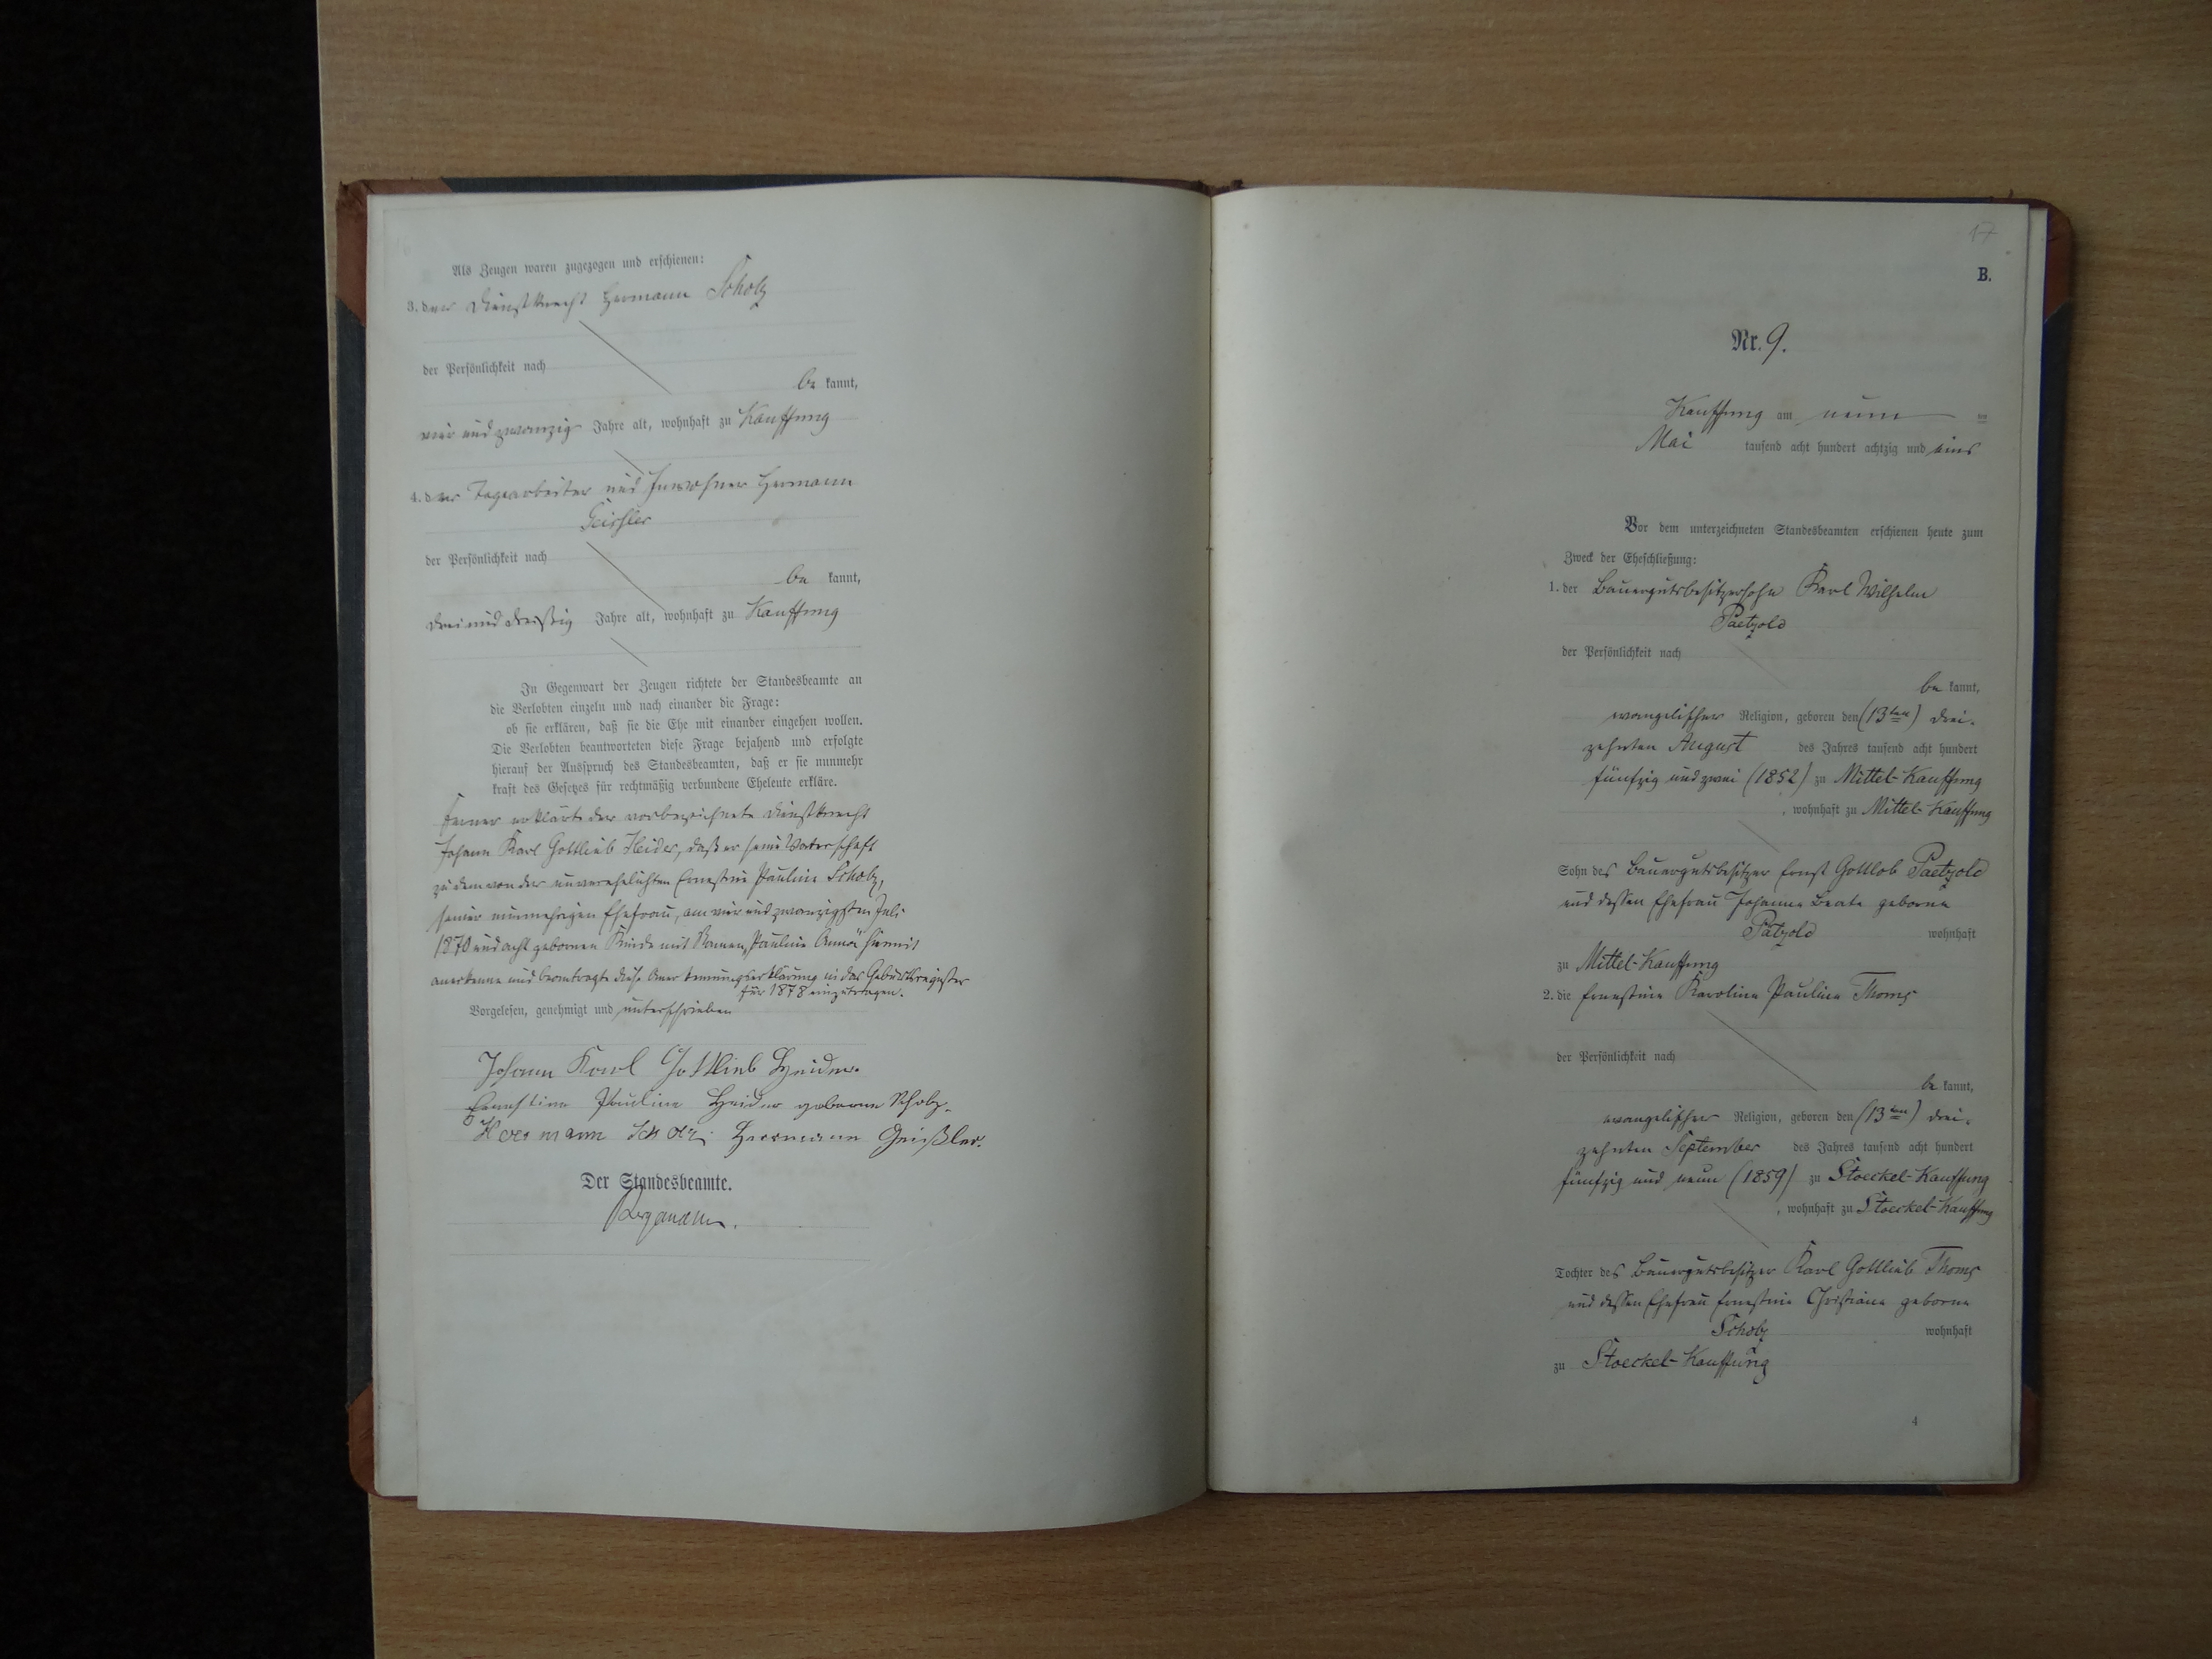 Als Zeugen waren zugezogen und erschienen:
3. der Dienstknecht Hermann Scholz
der Persönlichkeit nach
be kannt,
vier und zwanzig Jahre alt, wohnhaft zu Kauffung
4. der Tagearbeiter und Inwohner Hermann
Geissler
der Persönlichkeit nach
be kannt,
drei und dreißig Jahre alt, wohnhaft zu Kauffung
In Gegenwart der Zeugen richtete der Standesbeamte an
die Verlobten einzeln und nach einander die Frage:
ob sie erklären, daß sie die Ehe mit einander eingehen wollen.
Die Verlobten beantworteten diese Frage bejahend und erfolgte
hierauf der Ausspruch des Standesbeamten, daß er sie nunmehr
kraft des Gesetzes für rechtmäßig verbundene Eheleute erkläre.
Ferner erklärte der vorbezeichnete Dienstknecht
Johann Karl Gottlieb Heider, daß er seine Vaterschaft
zu dem von der unverehelichten Ernestine Pauline Scholz,
seiner nunmehrigen Ehefrau, am vier und zwanzigsten Juli
1870 und acht gebornen Kinde mit Namen „Pauline Anna" hiermit
anerkenne und beantragte diese Anerkennungserklärung in das Geburtsregister
für 1878 einzutragen.
Vorgelesen, genehmigt und unterschrieben
Johann Karl Gottlieb Heider.
Ernestine Pauline Heider geborne Scholz.
Hermann Scholz Herrmann Geißler.
Der Standesbeamte.
17
B.
Nr. 9.
Kauffung am neun ten
Mai tausend acht hundert achtzig und eins
Vor dem unterzeichneten Standesbeamten erschienen heute zum
Zweck der Eheschließung:
1. der Bauergutsbesitzersohn Karl Wilhelm
Paetzold
der Persönlichkeit nach
be kannt,
evangelischer Religion, geboren den (13ten) drei-
zehnten August des Jahres tausend acht hundert
fünfzig und zwei (1852) zu Mittel-Kauffung
, wohnhaft zu Mittel-Kauffung
Sohn des Bauergutsbesitzer Ernst Gottlob Paetzold
und dessen Ehefrau Johanne Beate geborne
Pätzold wohnhaft
zu Mittel-Kauffung
2. die Ernestine Karoline Pauline Thoms
der Persönlichkeit nach
be kannt,
evangelischer Religion, geboren den (13ten) drei-
zehnten September des Jahres tausend acht hundert
fünfzig und neun (1859) zu Stoeckel-Kauffung
, wohnhaft zu Stoeckel-Kauffung
Tochter des Bauergutsbesitzer Karl Gottlieb Thoms
und dessen Ehefrau Ernestine Christiane geborne
Scholz wohnhaft
zu Stoeckel-Kauffung
4